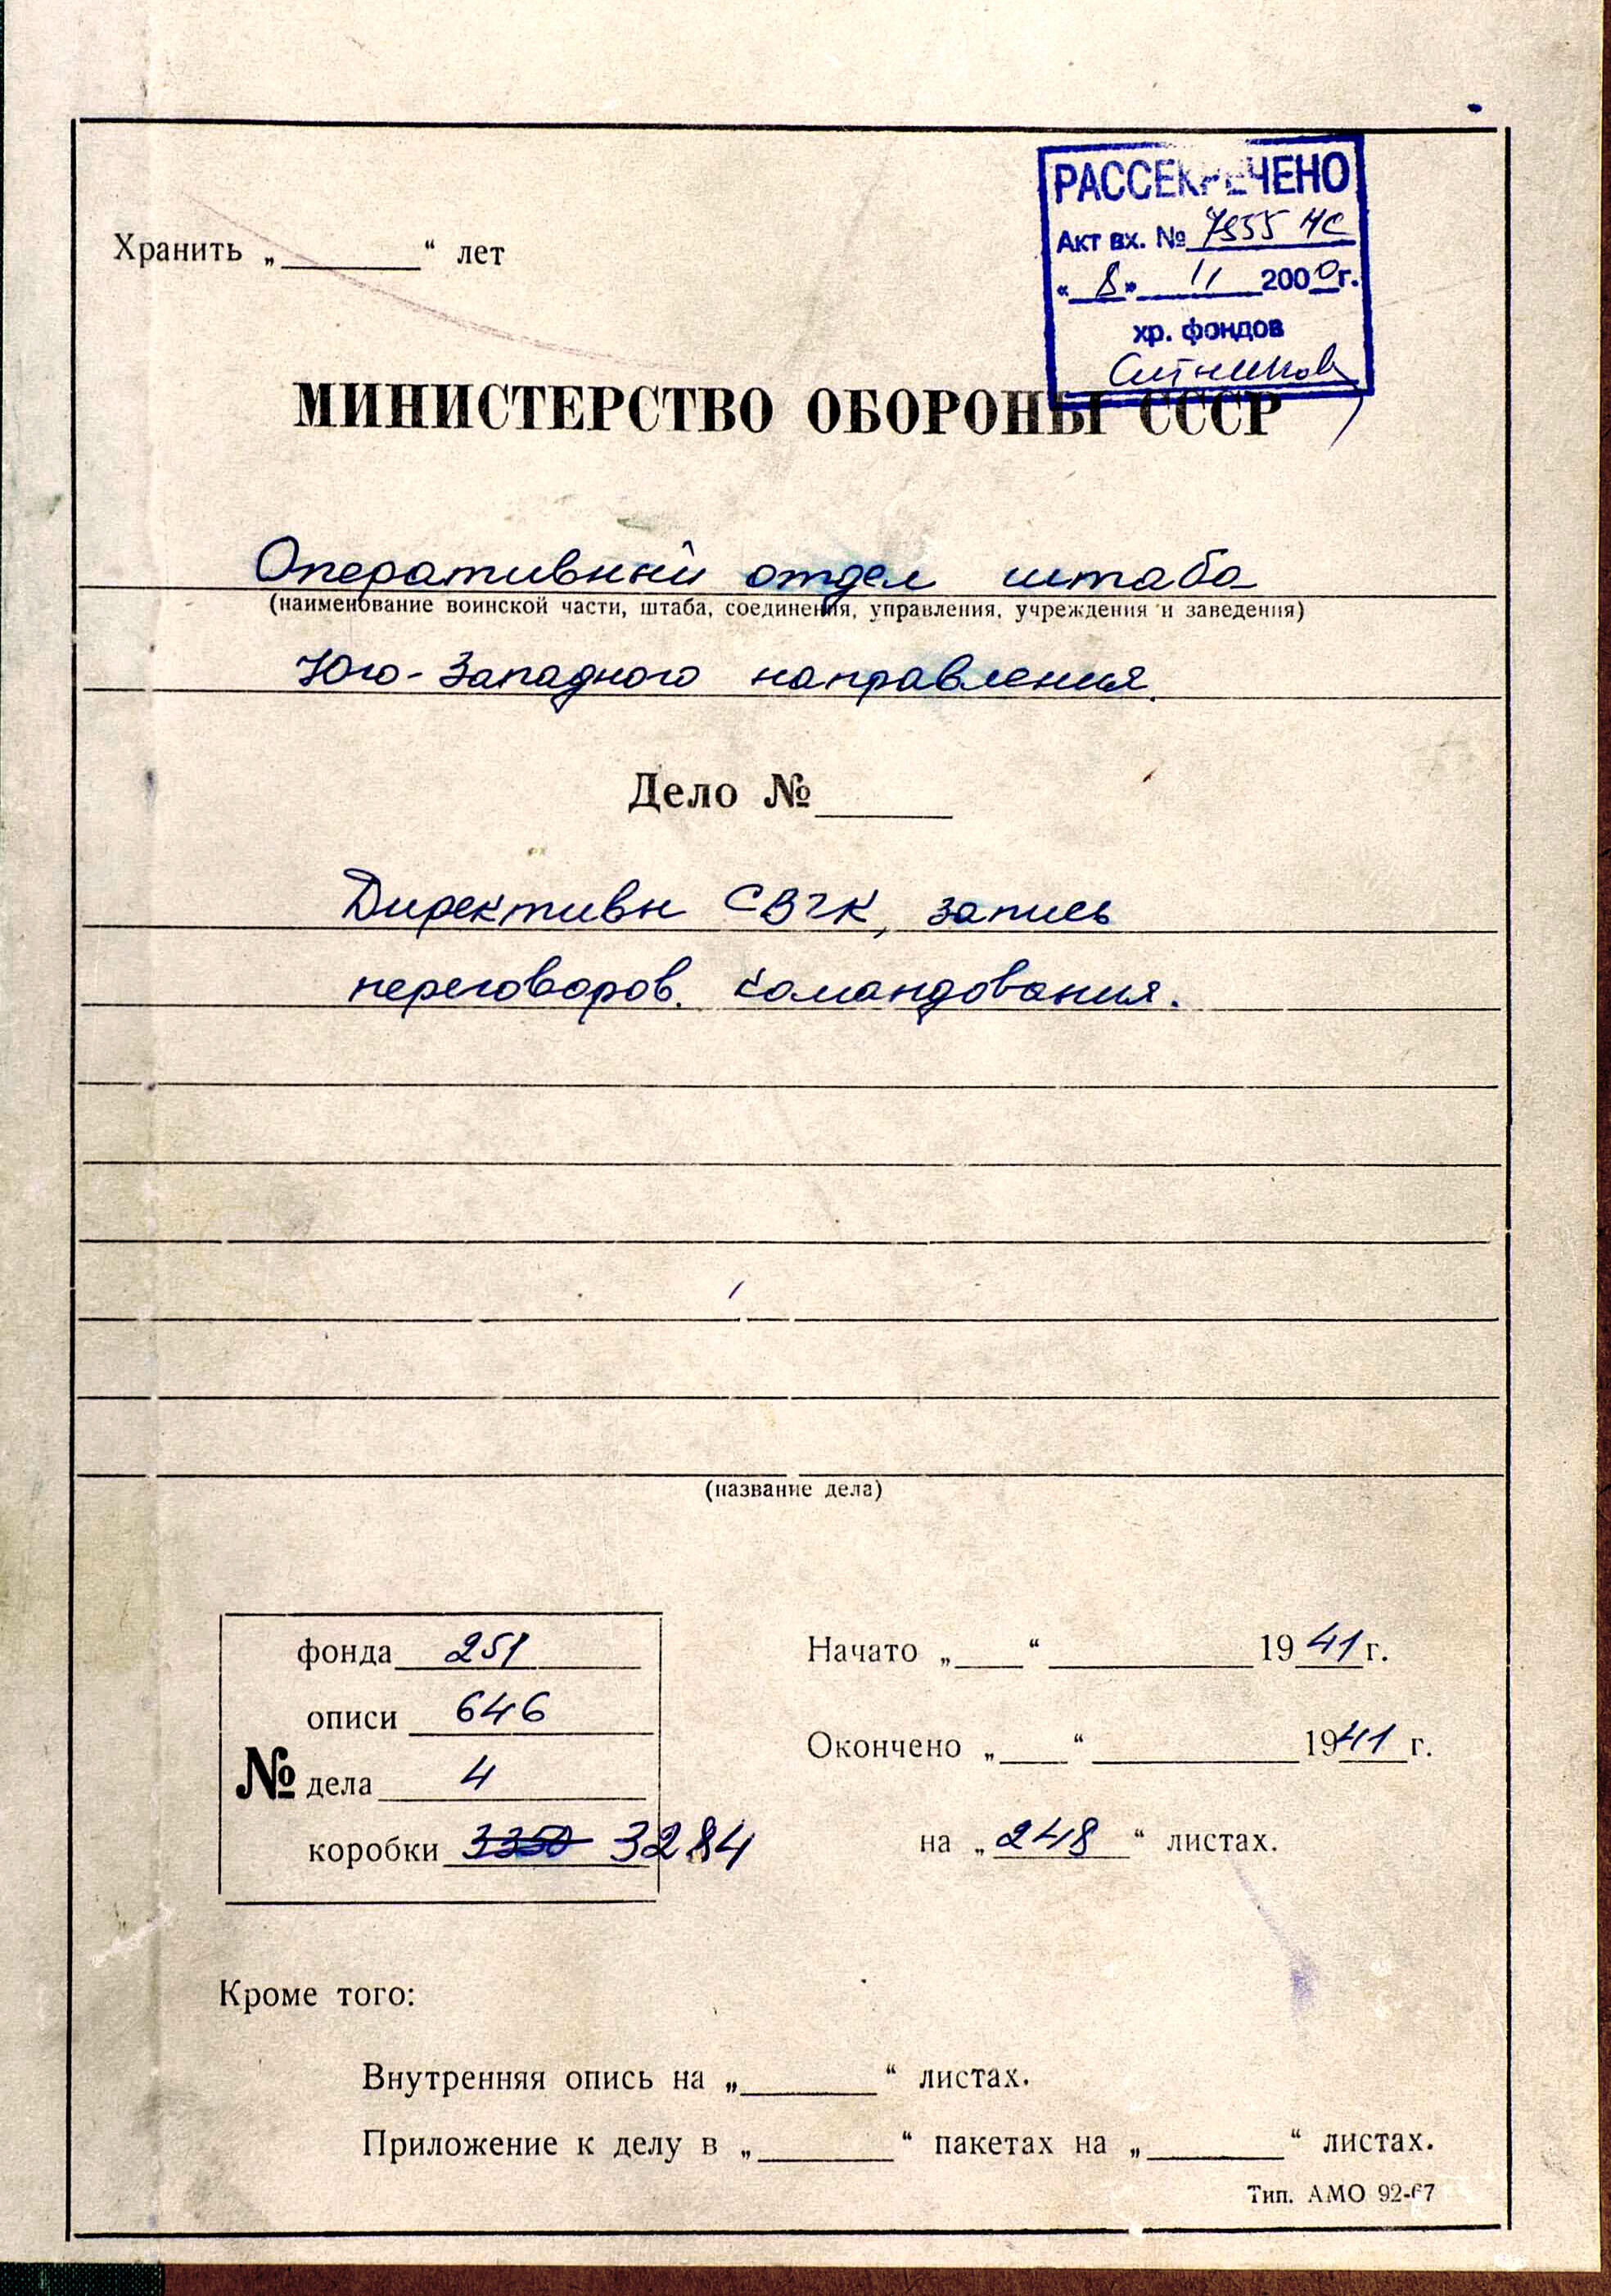 РАССЕКРЕЧЕНО
Акт вх. № 7955 нс
« 8 » 11 2000г.
хр. фондов
Ситников
Хранить „ “ лет
МИНИСТЕРСТВО ОБОРОНЫ СССР
Оперативный отдел штаба
(наименование воинской части, штаба, соединения, управления, учреждения и заведения)
Юго-Западного направления.
Дело №
Директивы СВГК, запись
переговоров. командования.
(название дела)
фонда 251
описи 646
№ дела 4
коробки 3350 3284
Начато „ “ 1941г.
Окончено „ “ 1941 г.
на „ 248 “ листах.
Кроме того:
Внутренняя опись на „ “ листах.
Приложение к делу в „ “ пакетах на „ “ листах.
Тип. АМО 92-67